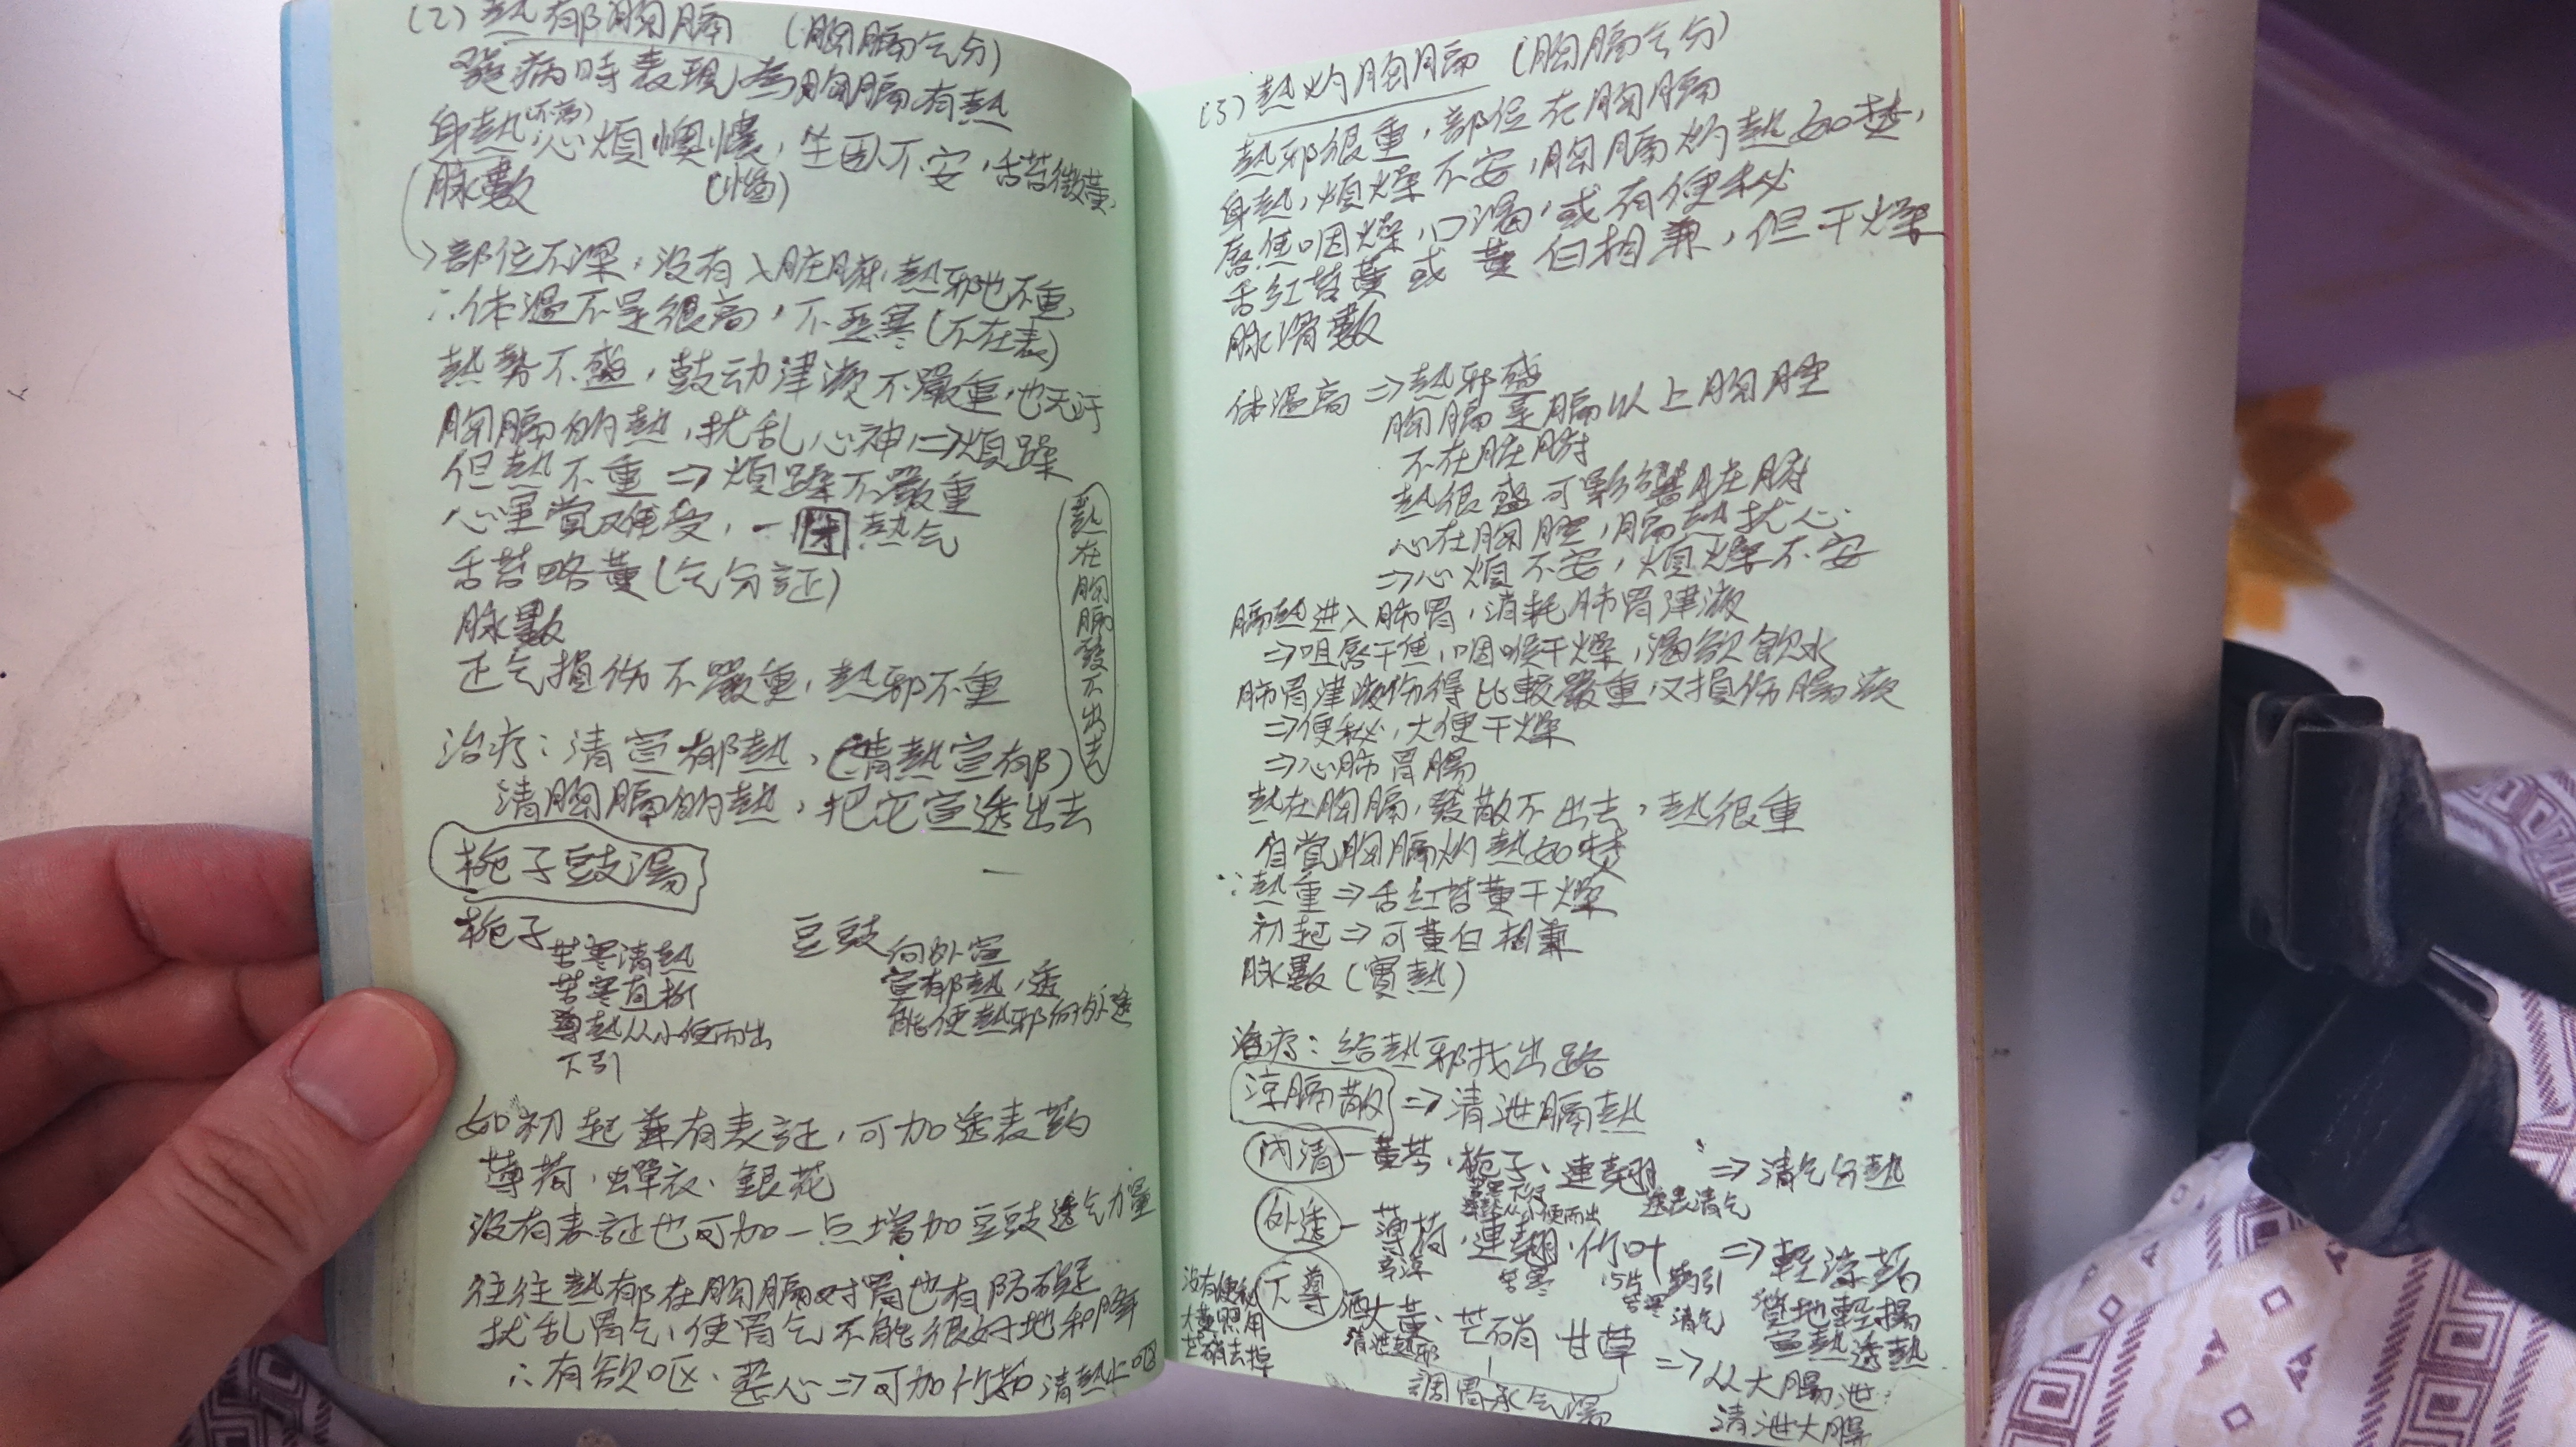 (2) 熱郁胸膈 (胸膈气分)
發病時表現為胸膈有熱
身熱(不高)心煩懊憹, 坐卧不安, 舌苔微黃,
脉數 (惱)
部位不深, 没有入脏腑, 熱邪也不重,
∴体温不是很高, 不恶寒(不在表)
熱势不盛, 鼓动津液不嚴重, 也无汗
胸膈的熱, 扰乱心神 ⇒ 煩躁
但熱不重 ⇒ 煩躁不嚴重
心里覚难受, 一団熱气
舌苔略黄(气分証)
脉數
正气損伤不嚴重, 熱邪不重
熱在胸膈發不出去
治疗: 清宣郁熱, (清熱宣郁)
清胸膈的熱, 把它宣透出去
栀子豉湯
栀子 豆豉
苦寒清熱 向外宣
苦寒直折 宣郁熱, 透
導熱从小便而出 能使熱邪向外透
下引
如初起兼有表証, 可加透表药
薄荷、蟬衣、銀花
没有表証也可加一点增加豆豉透气力量
往往熱郁在胸膈对胃也有防碍
扰乱胃气, 使胃气不能很好地和降
∴有欲呕、恶心 ⇒ 可加竹茹 清熱止呕
(3) 熱灼胸膈 (胸膈气分)
熱邪很重, 部位在胸膈
身熱, 煩燥不安, 胸膈灼熱如焚,
唇焦咽燥, 口渴, 或有便秘
舌红苔黄 或 黄白相兼, 但干燥
脉滑數
体温高 ⇒ 熱邪盛
胸膈是膈以上胸腔
不在脏腑
熱很盛可影响脏腑
心在胸腔, 膈熱扰心
⇒ 心煩不安, 煩燥不安
膈熱进入肺胃, 消耗肺胃津液
⇒ 咀唇干焦, 咽喉干燥, 渴欲飲水
肺胃津液伤得比較嚴重, 又損伤腸液
⇒ 便秘, 大便干燥
⇒ 心肺胃腸
熱在胸膈, 發散不出去, 熱很重
自覚胸膈灼熱如焚
∵熱重 ⇒ 舌红苔黄干燥
初起 ⇒ 可黄白相兼
脉數(實熱)
治疗: 给熱邪找出路
涼膈散 ⇒ 清泄膈熱
内清 - 黄芩、栀子、連翹 ⇒ 清气分熱
導熱下行从小便而出 透表清气
外透 - 薄荷、連翹、竹叶 ⇒ 輕涼药
辛涼 苦寒 15片 苦寒 清气 輕揚
宣熱透熱
没有便秘
大黄照用
芒硝去掉
下導 酒大黄、芒硝 甘草 ⇒ 从大腸泄
清泄熱邪
調胃承气湯 清泄大腸